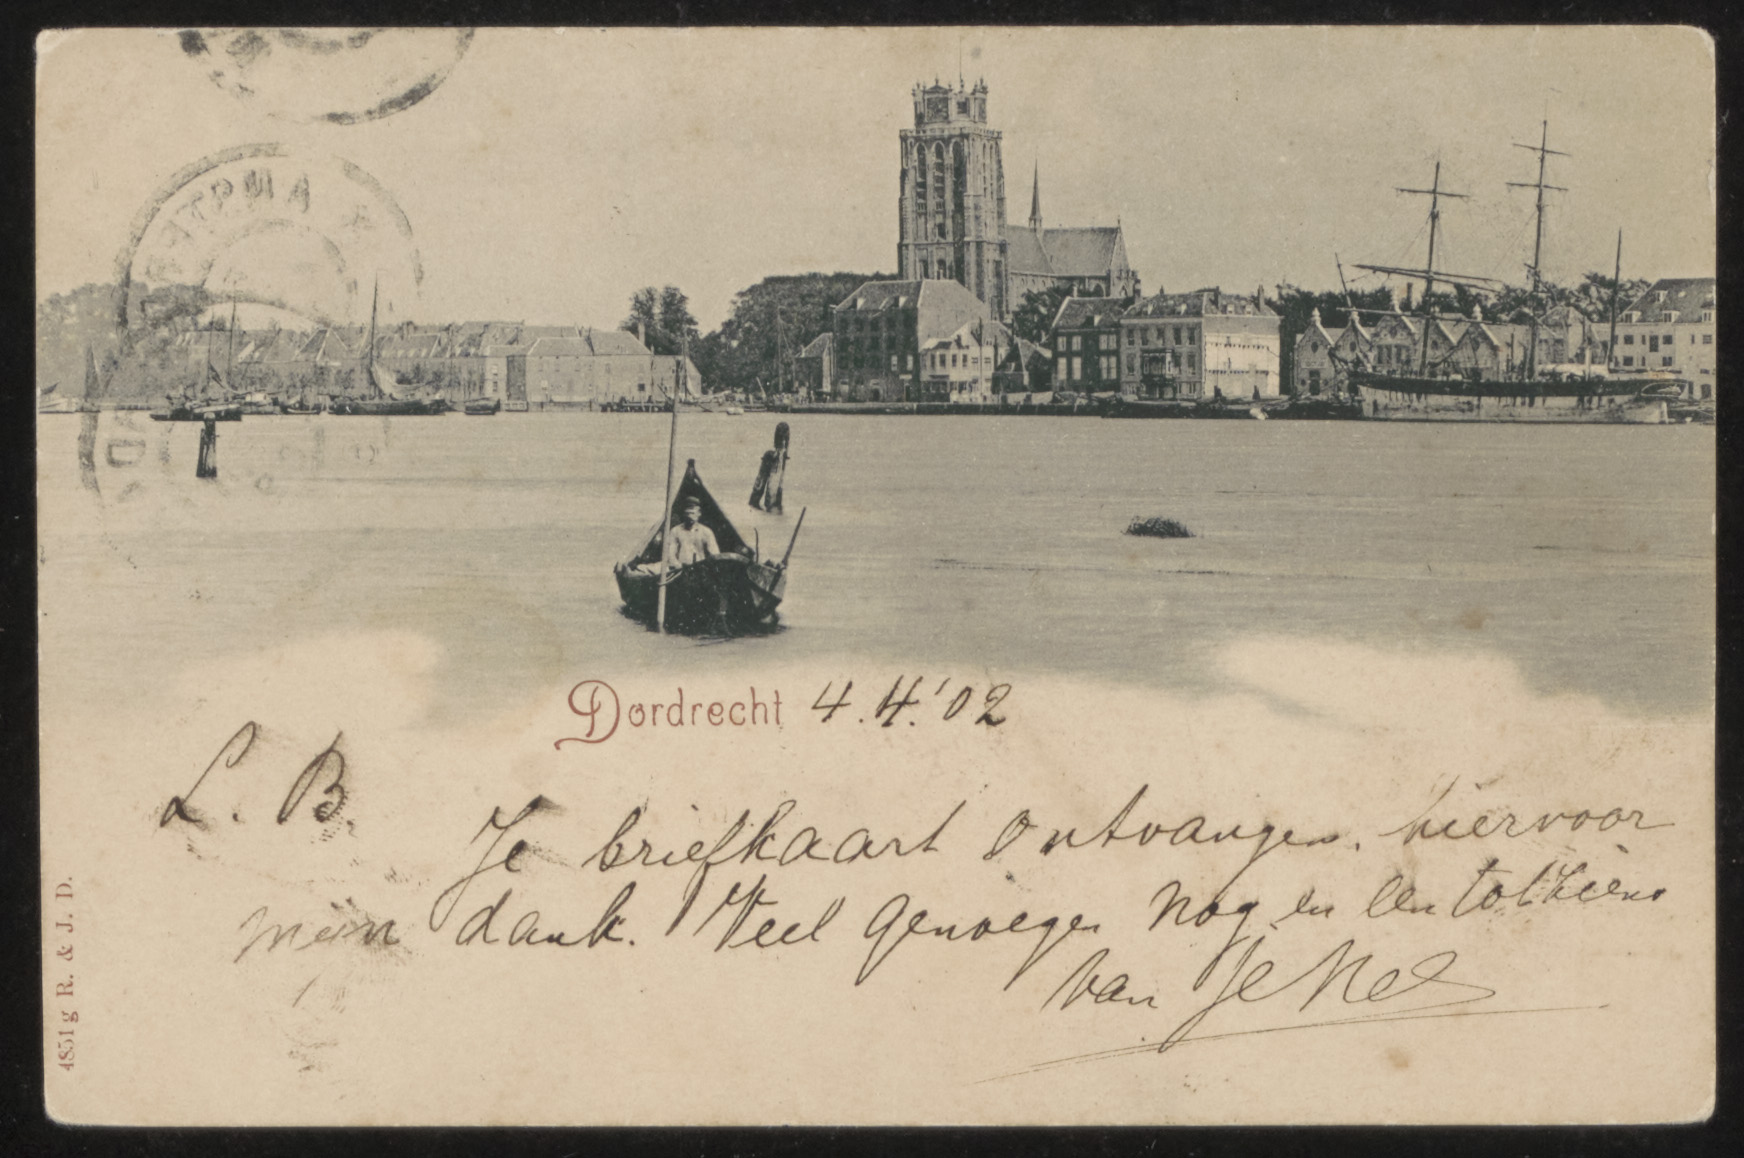 AMSTE
Dordrecht 4.4.'02
L. B.
Je briefkaart ontvangen, hiervoor
mijn dank. Veel genoegen nog en een tot ziens
van Je Nel
4851g R. & J. D.